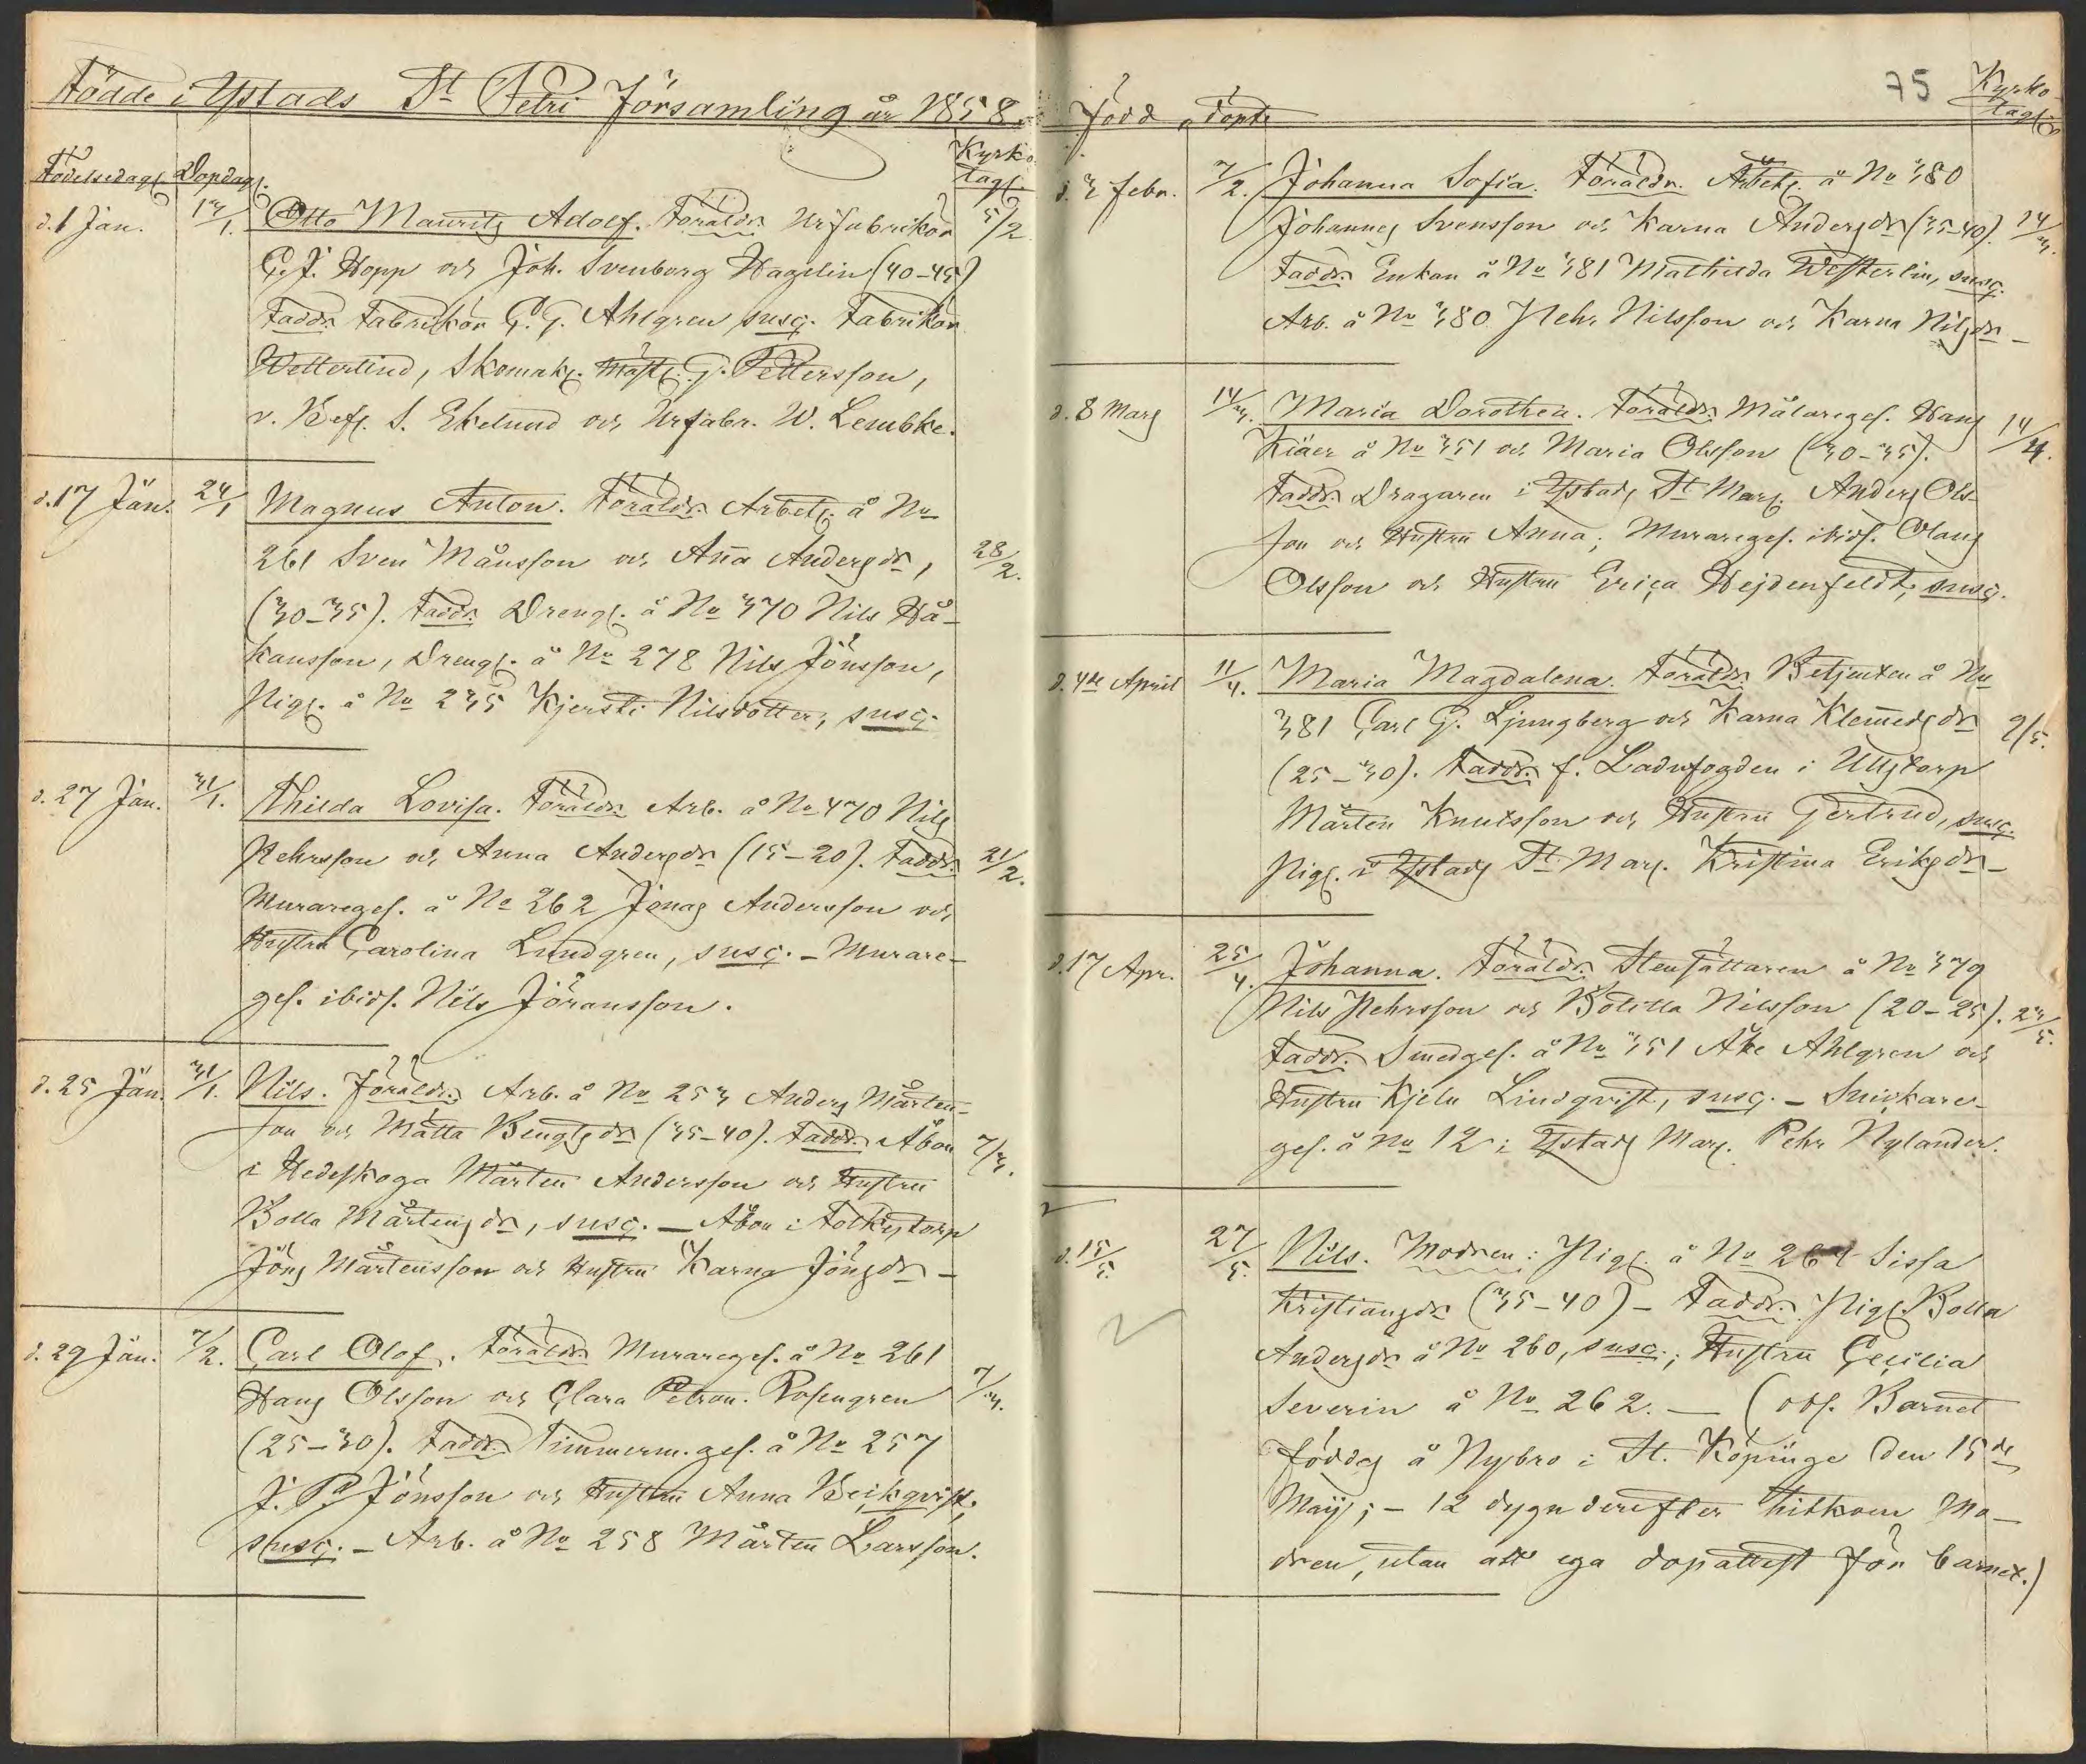 Födde i Ystads St Petri Församling år 1858.
Födelsedag. Dopdag. Kyrkotagn.
d. 1 Jan. 13/1. Otto Mauritz Adolf. Föräldr. Urfabrikör 5/2
C. J. Hopp och Joh. Svenborg Hagelin (40-45)
Faddr. Fabrikör C. G. Ahlgren susc. Fabrikör
Wetterlind, Skomak. Mäst. G. Pettersson,
v. Bef. S. Ekelund och Urfabr. W. Lembke.
d. 17 Jan. 24/1 Magnus Anton. Föräldr. Arbet. å No
261 Sven Månsson och Ana Andersdr, 28/2.
(30-35). Faddr. Dreng. å No 370 Nils Hå-
kansson, Dreng. å No 278 Nils Jönsson,
Pig. å No 235 Kjersti Nilsdotter, susc.
d. 27 Jan. 31/1. Thilda Lovisa. Föräldr. Arb. å No 470 Nils
Pehrsson och Anna Andersdr (15-20). Faddr. 21/2.
Murareges. å No 262 Jonas Andersson och
Hustru Carolina Lundgren, susc. - Murare-
ges. ibid. Nils Jöransson.
d. 25 Jan. 31/1. Nils. Föräldr. Arb. å No 253 Anders Mårten-
son och Mätta Bengtsdr (35-40). Faddr. Åbon 7/3.
i Hedeskoga Mårten Andersson och Hustru
Bolla Mårtensdr, susc. - Åbon i Folkestorp
Jöns Mårtensson och Hustru Karna Jönsdr -
d. 29 Jan. 7/2. Carl Olof. Föräldr. Murareges. å No 261
Hans Olsson och Clara Petron. Rosengren 7/3.
(25-30). Faddr. Timmerm. ges. å No 257
J. P. Jönsson och Hustru Anna Beikqvist,
susc. - Arb. å No 258 Mårten Larsson.
75
Född döpt Kyrkotagn.
d. 3 febr. 7/2. Johanna Sofia. Föräldr. Arbet. å No 380
Johannes Svensson och Karna Andersdr (35-40). 14/3.
Faddr. Enkan å No 381 Mathilda Westerlin, susc.
Arb. å No 380 Pehr Nilsson och Karna Nilsdr -
d. 8 Mars 14/3. Maria Dorothea. Föräldr. Målareges. Hans 14/4.
Kiäer å No 351 och Maria Olsson (30-35).
Faddr. Dragaren i Ystads St Mar. Anders Ols-
son och Hustru Anna; Murareges. ibid. Olans
Olsson och Hustru Erica Hejdenfeldt, susc.
d. 4de April 11/4. Maria Magdalena. Föräldr. Betjenten å No
381 Carl G. Ljungberg och Karna Klemedsdr 9/5.
(25-30). Faddr. f. Ladufogden i Ullstorp
Mårten Knutsson och Hustru Gertrud, susc.
Pig. i Ystads St Mar. Kristina Eriksdr -
d. 17 Apr. 25/4. Johanna. Föräldr. Stensättaren å No 379
Nils Pehrsson och Bolilla Nilsson (20-25). 23/5.
Faddr. Smedges. å No 351 Åke Ahlgren och
Hustru Kjeln Lindqvist, susc. - Snickare-
ges. å No 12 i Ystads Mar. Pehr Nylander.
d. 15/5. 27/5. Nils. Modren: Pig. å No 264 Sissa
Kristiansdr (35-40) - Faddr. Pig. Bolla
Andersdr å No 260, susc.; Hustru Cecilia
Severin å No 262. - (obs. Barnet
föddes å Nybro i St. Köpinge den 15de
Maij; - 12 dygn derefter hitkom Mo-
dren, utan att ega dopattest för barnet.)